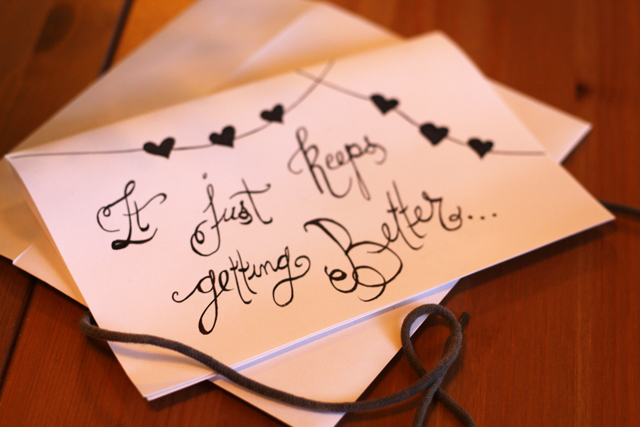 It just keeps
getting Better...